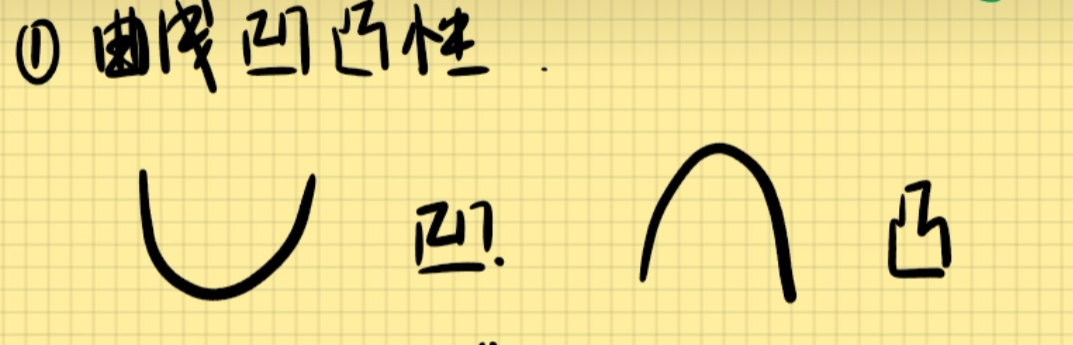 ① 曲线凹凸性.
凹. 凸